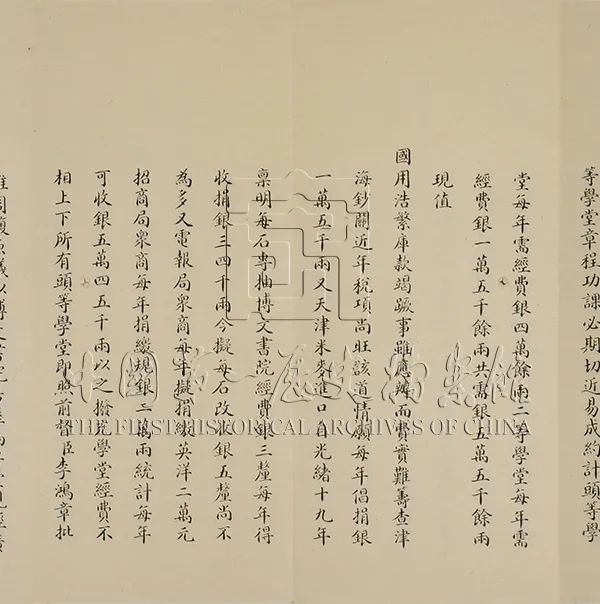 等學堂章程功課必期切近易成約計頭等學
堂每年需經費銀四萬餘兩二等學堂每年需
經費銀一萬五千餘兩共需銀五萬五千餘兩
現值
國用浩繁庫款竭蹶事雖應辦而費實難籌查津
海鈔關近年稅項尚旺該道情願每年倡捐銀
一萬五千兩又天津米麥進口自光緒十九年
稟明每石專抽博文書院經費銀三釐每年得
收捐銀三四千兩今擬每石改收銀五釐尚不
為多又電報局衆商每年擬捐繳英洋二萬元
招商局衆商每年捐繳規銀二萬兩統計每年
可收銀五萬四五千兩以之撥充學堂經費不
相上下所有頭等學堂即照前督臣李鴻章批
中國第一歷史檔案館
THE FIRST HISTORICAL ARCHIVES OF CHINA